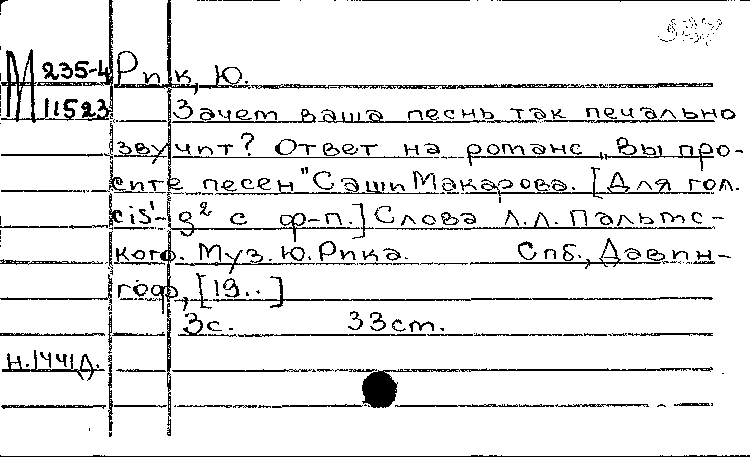 М 235-4 Рик, Ю.
11523 Зачем ваша песнь так печально
звучит? Ответ на романс „Вы про-
сите песен" Саши Макарова. [Для гол.
cis¹-g² с ф-п.] Слова Л.Л. Пальмс-
кого. Муз. Ю. Рика. Спб., Давин-
гоф, [19..]
3с. 33см.
Н.1441Д.